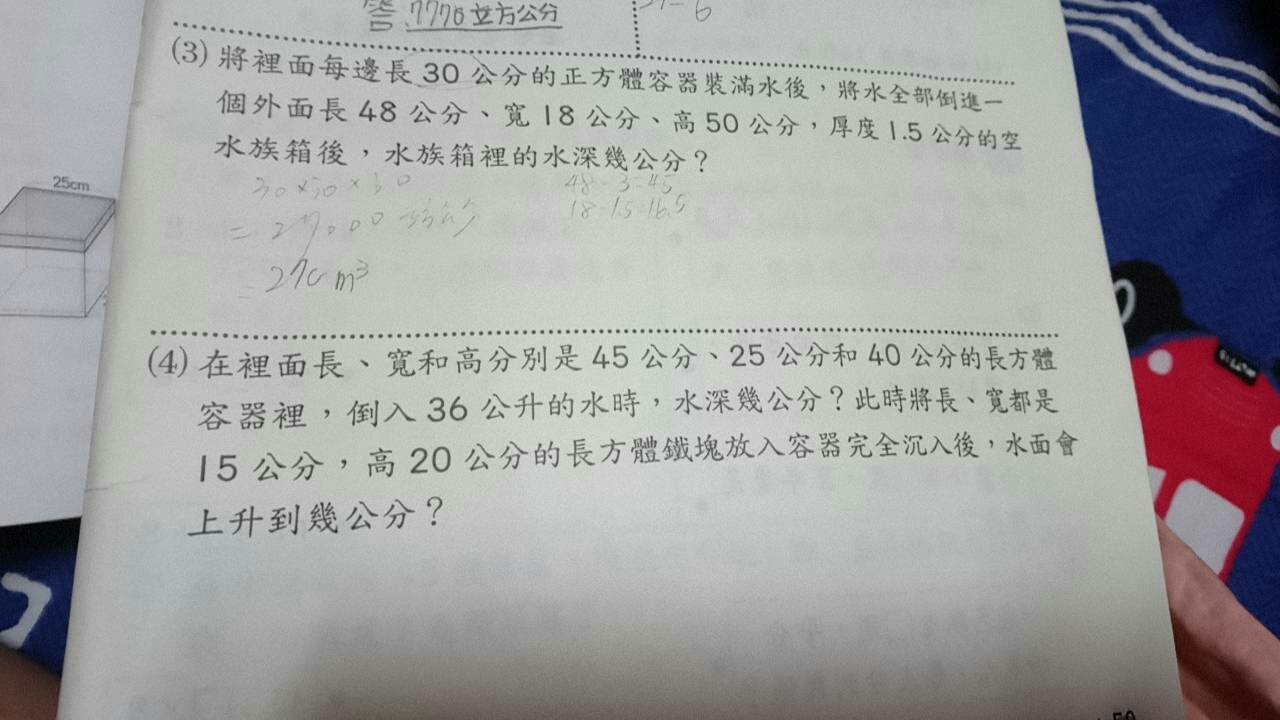 答 7776 立方公分
25cm
(3) 將裡面每邊長 30 公分的正方體容器裝滿水後，將水全部倒進一
個外面長 48 公分、寬 18 公分、高 50 公分，厚度 1.5 公分的空
水族箱後，水族箱裡的水深幾公分？
30×30×30
48-3=45
=27000
18-1.5=16.5
=27cm³
(4) 在裡面長、寬和高分別是 45 公分、25 公分和 40 公分的長方體
容器裡，倒入 36 公升的水時，水深幾公分？此時將長、寬都是
15 公分，高 20 公分的長方體鐵塊放入容器完全沉入後，水面會
上升到幾公分？